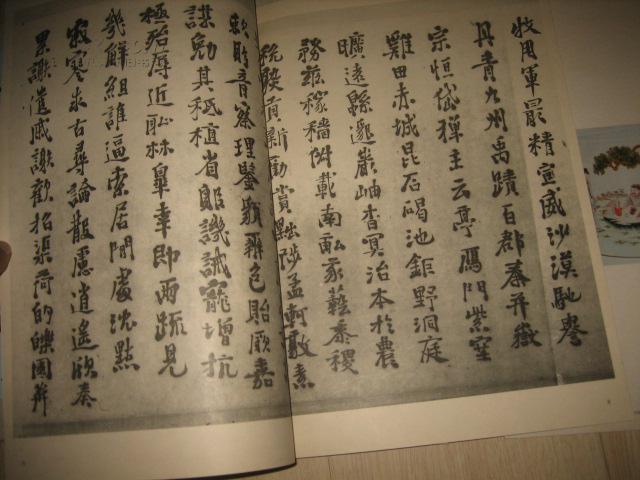 牧用軍最精宣威沙漠馳譽
丹青九州禹蹟百郡秦并嶽
宗恒岱禪主云亭鴈門紫塞
雞田赤城昆石碣池鉅野洞庭
曠遠緜邈巖岫杳冥治本於農
務茲稼穡俶載南畝我藝黍稷
稅熟貢新勸賞黜陟孟軻敦素
敕聆音察理鑒貌辨色貽厥嘉
謀勉其祗植省躬譏誡寵增抗
極殆辱近恥林皋幸即兩疏見
幾解組誰逼索居閒處沈默
寂寥求古尋論散慮逍遙欣奏
累謝遣慼謝歡招渠荷的皪園莽